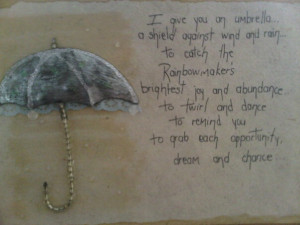 I give you an umbrella...
a shield against wind and rain...
to catch the
Rainbowmaker's
brightest joy and abundance...
to twirl and dance
to remind you
to grab each opportunity,
dream and chance